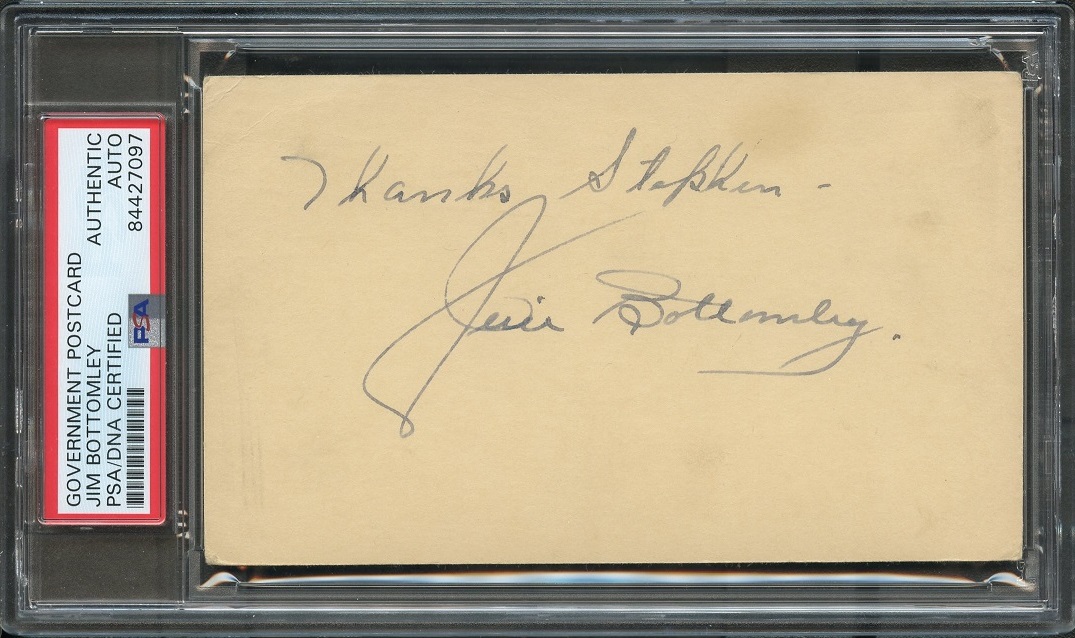 GOVERNMENT POSTCARD
JIM BOTTOMLEY
PSA/DNA CERTIFIED
AUTHENTIC
AUTO
84427097
PSA
Thanks Stephen -
Jim Bottomley.